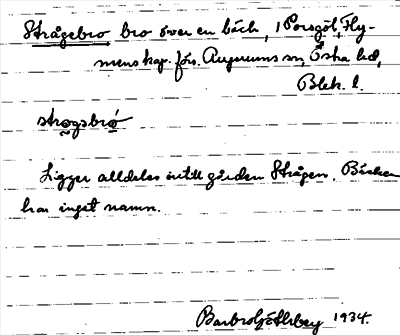 Strågebro bro över en bäck, i Porsgöl, Fly-
menskap. förs. Augerums sn, Östra hd,
Blek. l.
strogsbró
Ligger alldeles intill gården Strågen. Bäcken
har inget namn.
1934.